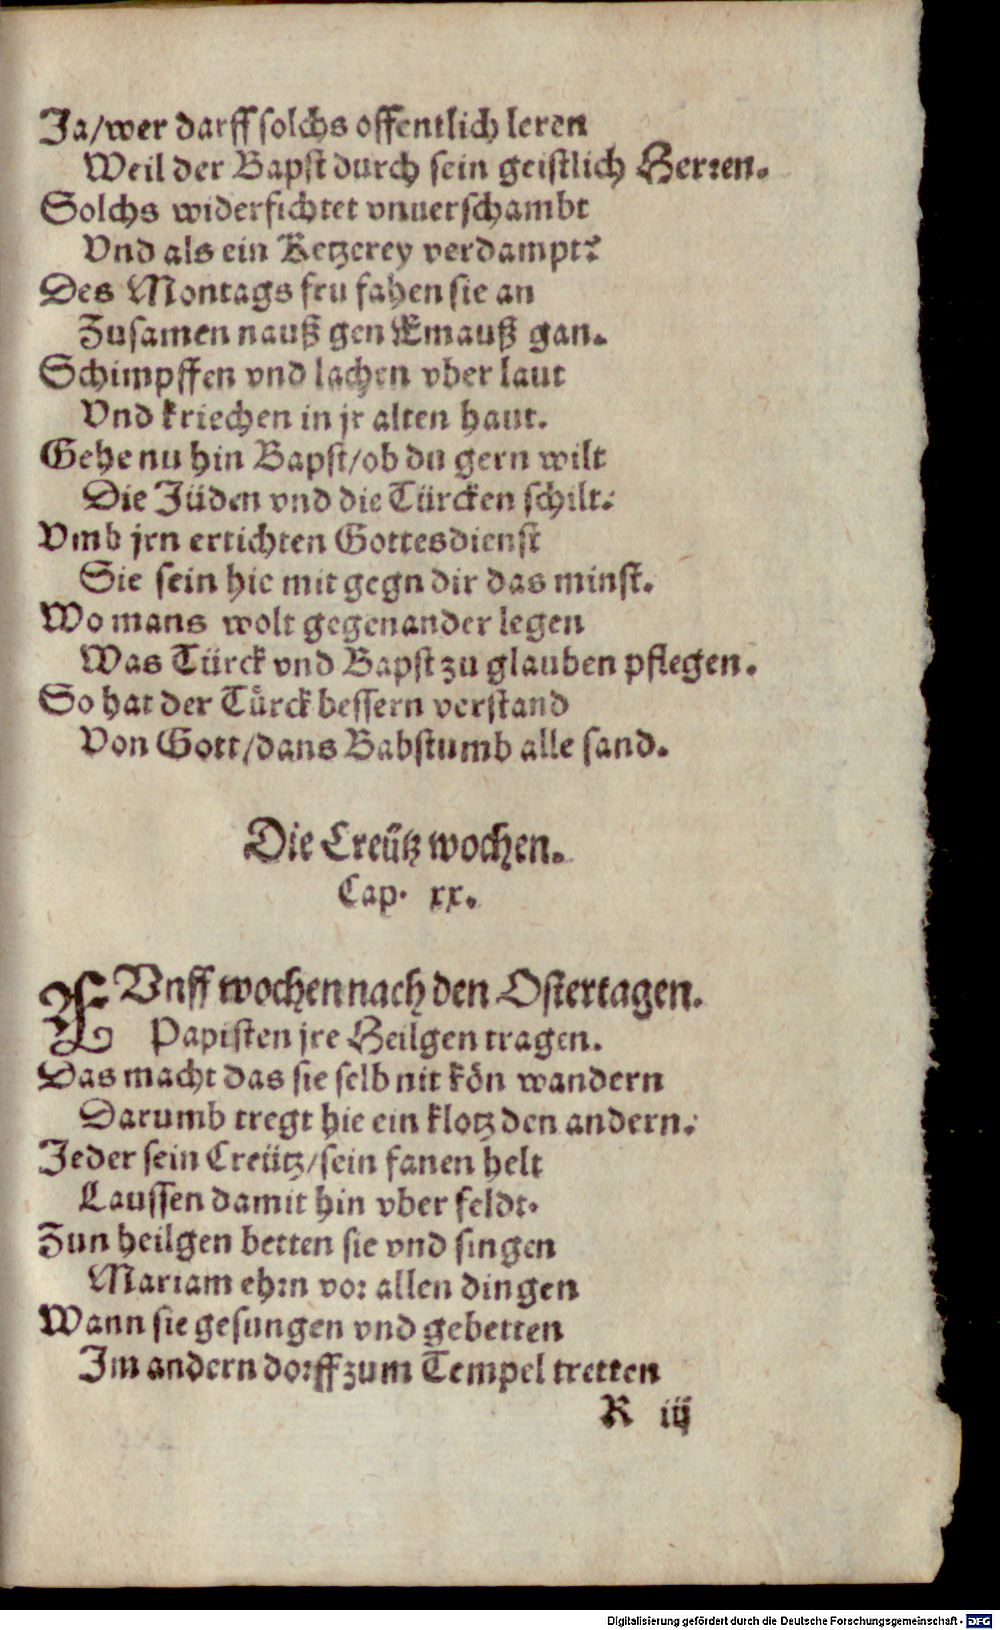 Ja/wer darff solchs offentlich leren
Weil der Bapst durch sein geistlich Herren.
Solchs widerfichtet vnuerschambt
Vnd als ein Ketzerey verdampt?
Des Montags fru fahen sie an
Zusamen nauß gen Emauß gan.
Schimpffen vnd lachen vber laut
Vnd kriechen in jr alten haut.
Gehe nu hin Bapst/ob du gern wilt
Die Jüden vnd die Türcken schilt:
Vmb jrn ertichten Gottesdienst
Sie sein hie mit gegn dir das minst.
Wo mans wolt gegenander legen
Was Türck vnd Bapst zu glauben pflegen.
So hat der Türck bessern verstand
Von Gott/dans Babstumb alle sand.
Die Creütz wochen.
Cap. xx.
FVnff wochen nach den Ostertagen.
Papisten jre Heilgen tragen.
Das macht das sie selb nit kön wandern
Darumb tregt hie ein klotz den andern:
Jeder sein Creütz/sein fanen helt
Laussen damit hin vber feldt.
Zun heilgen betten sie vnd singen
Mariam ehrn vor allen dingen
Wann sie gesungen vnd gebetten
Im andern dorff zum Tempel tretten
R iij
Digitalisierung gefördert durch die Deutsche Forschungsgemeinschaft - DFG